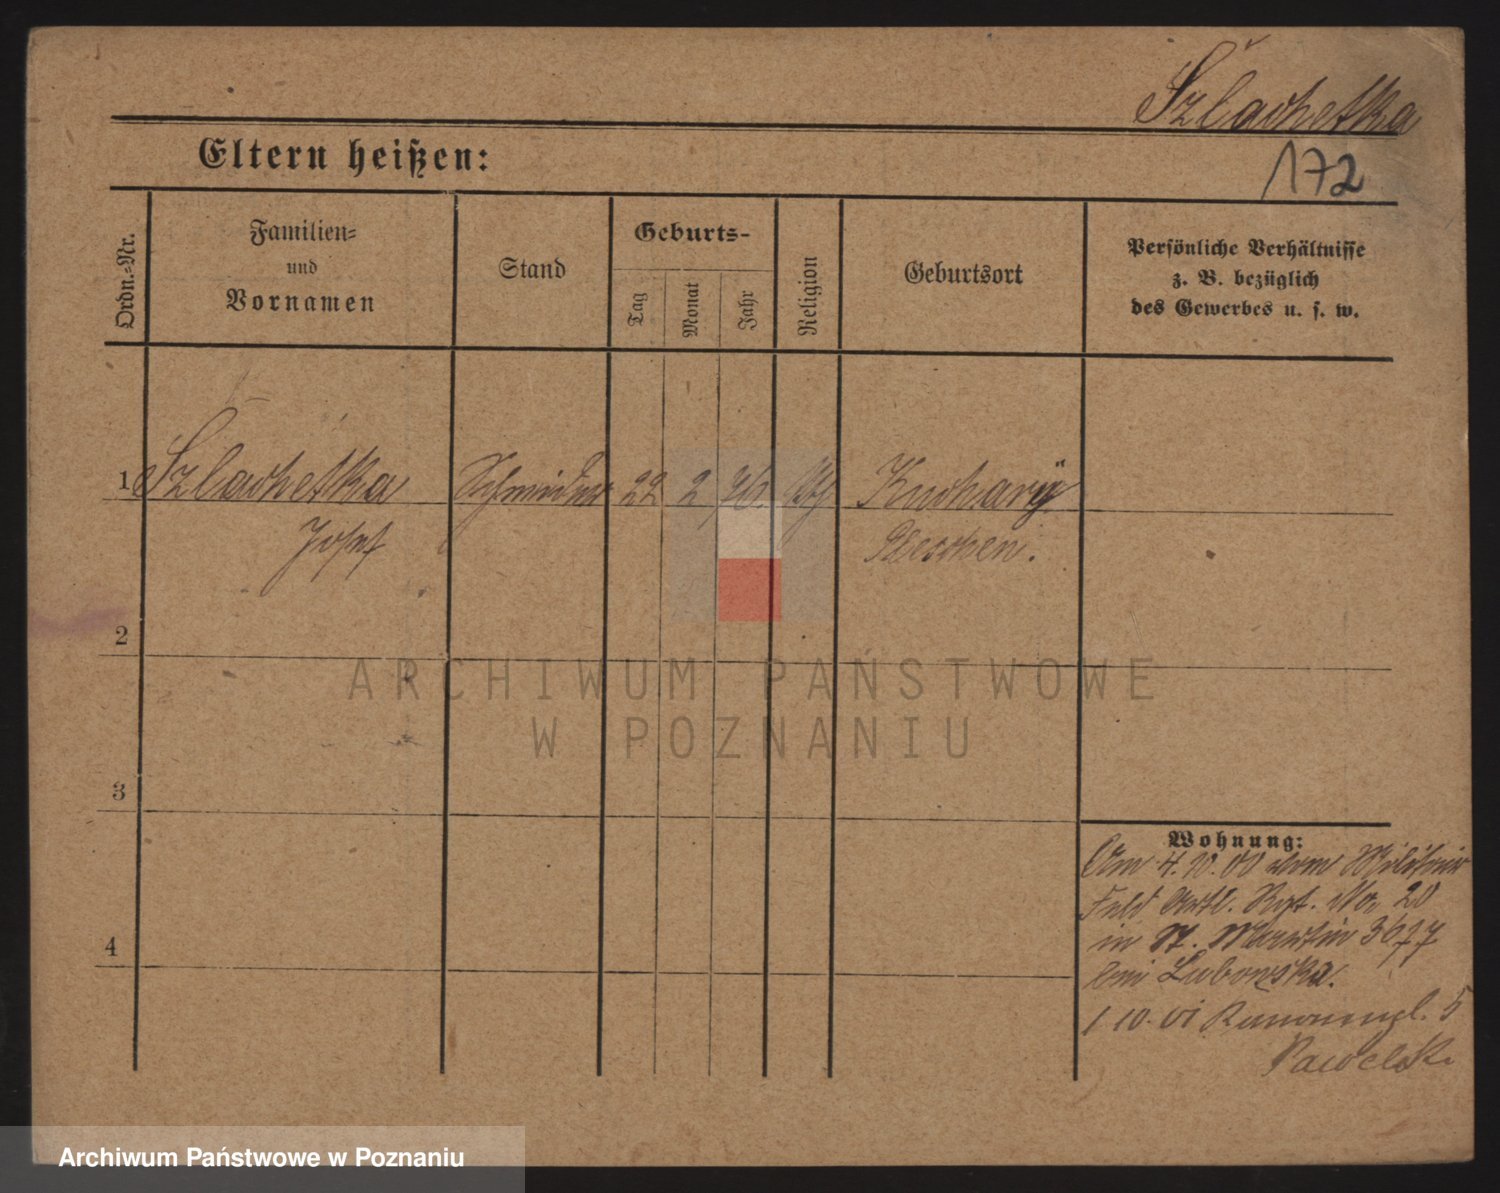 Szlachetka
Eltern heißen:
172
Ordn.-Nr.
Familien-
und
Vornamen
Stand
Geburts-
Tag
Monat
Jahr
Religion
Geburtsort
Persönliche Verhältnisse
z. B. bezüglich
des Gewerbes u. s. w.
1 Szlachetka Schneider 22 2 76. Kuchary
Josef Pleschen.
2
3
4
Wohnung:
Am 4.10.00 vom Militair
Feld Artl. Rgt. No. 20
in St. Martin 36
bei Lubonska.
1 10. 01 5
Pawelski
ARCHIWUM PAŃSTWOWE
W POZNANIU
Archiwum Państwowe w Poznaniu